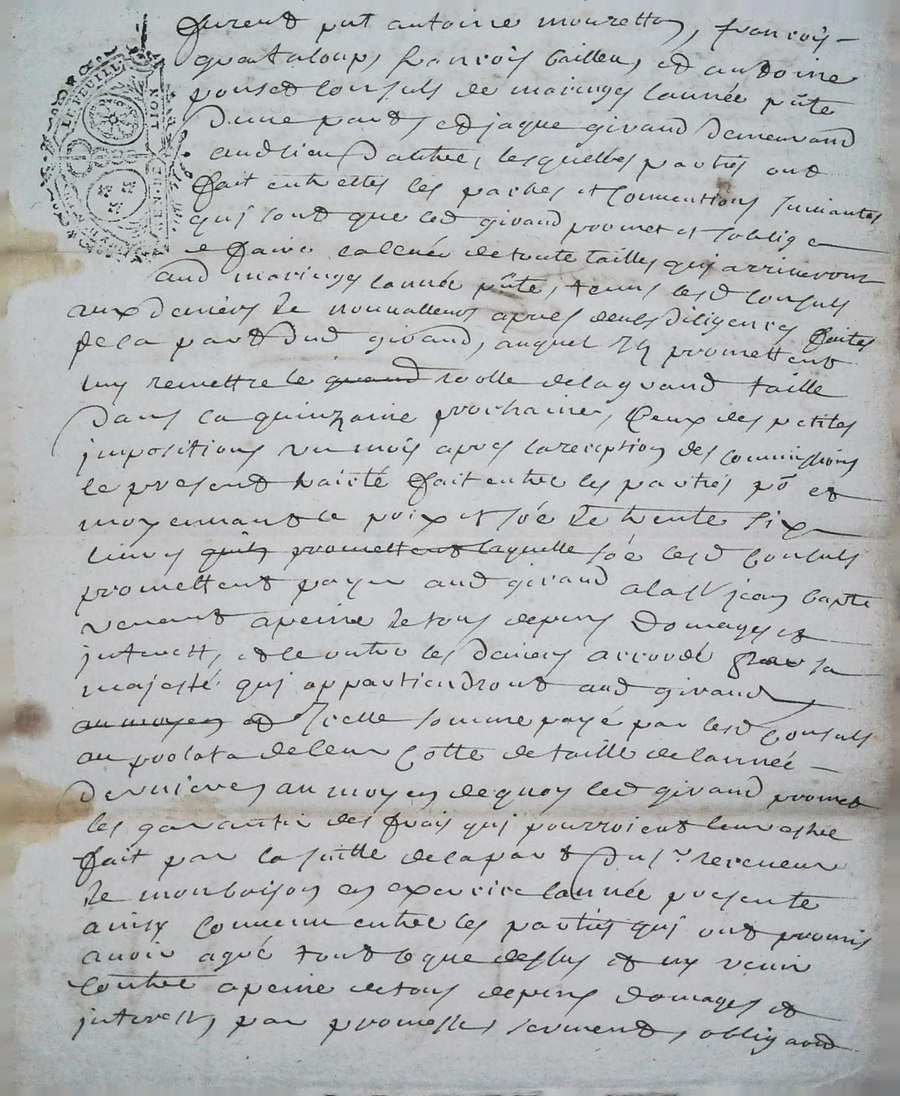 LE FEUILL
HUIT DEN
furent pnt antoine mouretton, françois
quataloup, françois baillen, et antoine
ponset consuls de maringes lannée pnte
dune part et jaque giraud demeurand
audlieu dautre, lesquelles parties ont
fait entrelles les paches et conventions suivantes
qui sont que led giraud promet et soblige
faire callevé de toute tailles qui arriveront
aud maringes lannée pnte, tenus lesd consuls
aux deniers de nonvalleurs apres deubs diligences faites
de la part dud giraud, auquel ilz promettent
luy remettre le grand roolle delagrand taille
dans la quinzaine prochaine, ceux des petites
impositions un mois apres lareception des commissions
le present traicté fait entre les parties po et
moyennant le prix et soe de trente six
livres quils promettent laquelle soe lesd consuls
promettent payer aud giraud alast jean bapte
venent apeine de tous depens domages et
interest, et le outre les deniers accordé par sa
majesté qui appartiendront aud giraud
au moyen de Icelle somme payé par lesd consuls
au prolata de leur cotte de taille de lannée
derniere au moyen de quoy led giraud promet
les garantir des frais qui pourroient leur estre
fait par la suitte delapart du sr. receveur
de monbrison en exercice lannée presente
ainsy convenu entre les parties qui ont promis
avoir agré tout ceque dessus et ny venir
contre apeine de tous depens domages et
interest, par promesses serment, obligeant